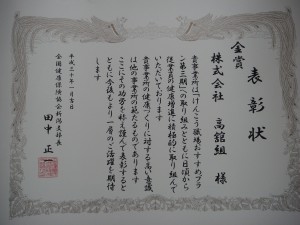 表彰状
金賞
株式会社 高舘組 様
貴事業所は「けんこう職場おすすめプラ
ン第三期」の取り組みとともに日頃から
従業員の健康増進に積極的に取り組んで
いただいております
貴事業所の健康づくりに対する高い意識
は他の事業所の範たるものであります
ここにその功労を称え謹んで表彰すると
ともに今後もより一層のご活躍を期待
します
平成三十年一月吉日
全国健康保険協会新潟支部長
田中 正一